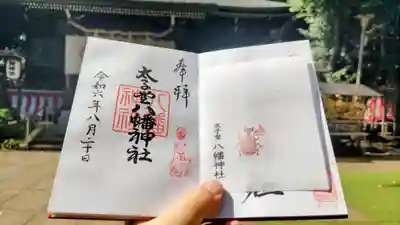 奉拝
太子堂八幡神社
八幡神社
令和六年八月二十日
太子堂 八幡神社